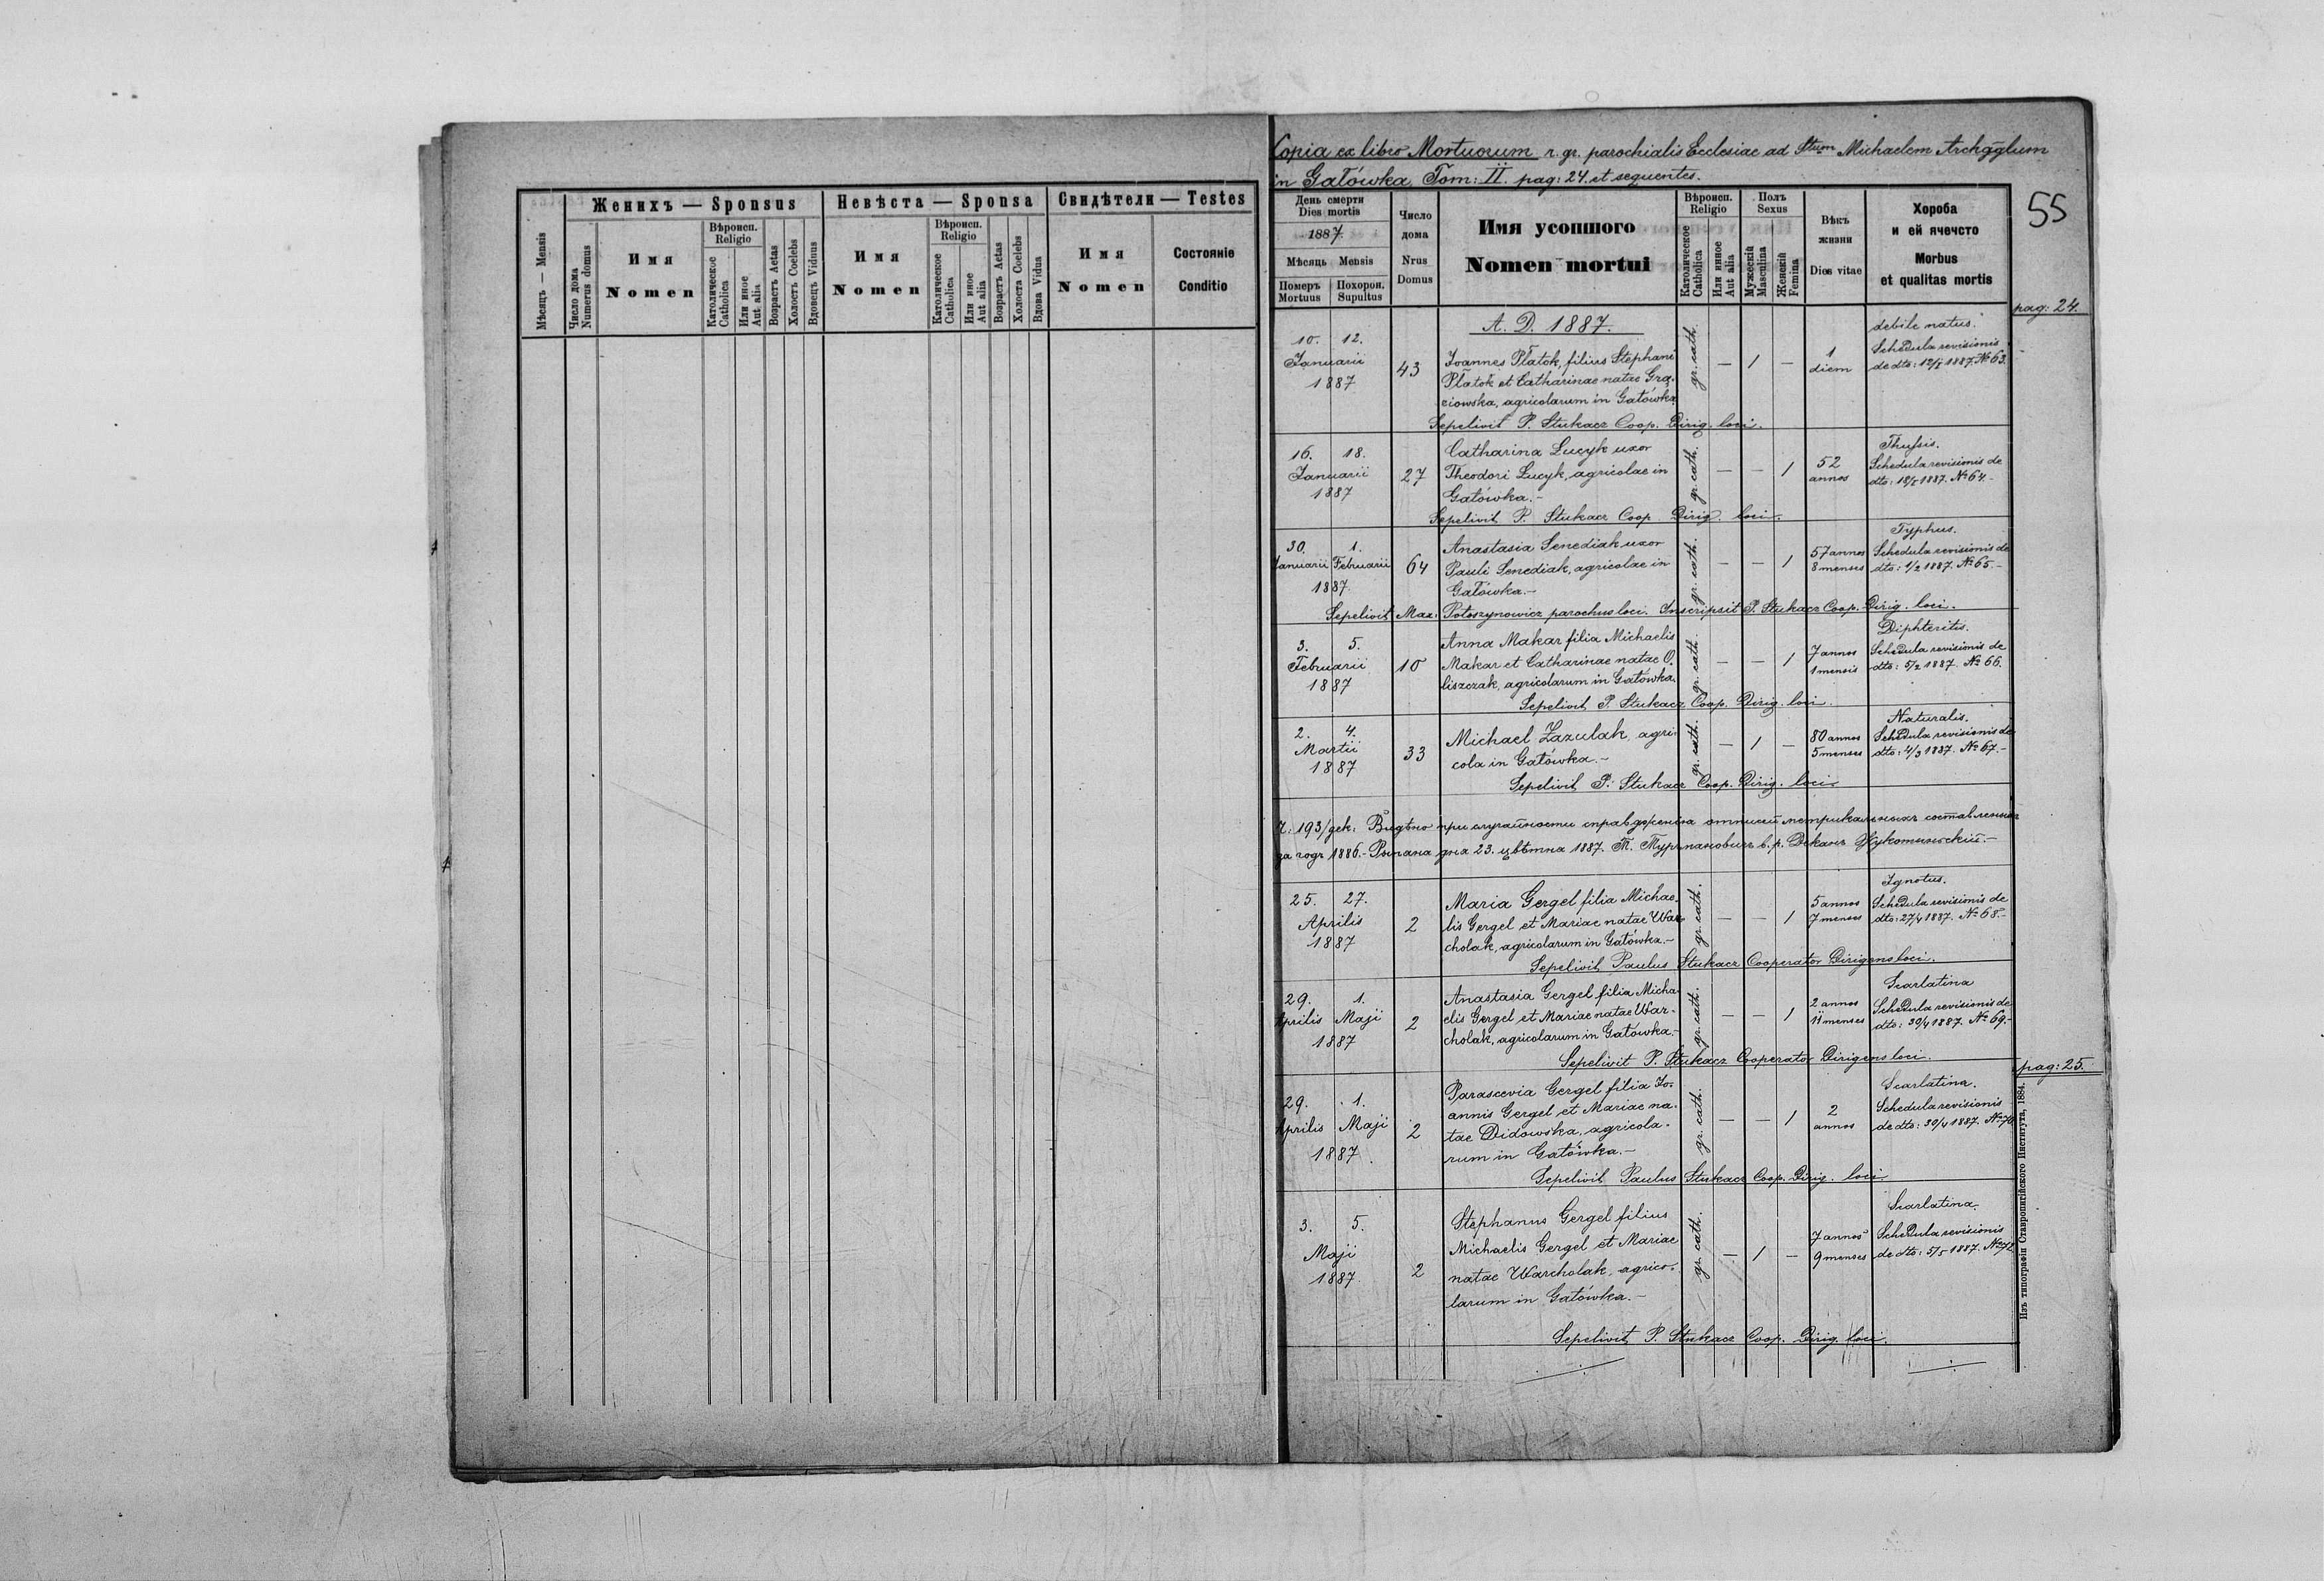 Женихъ — Sponsus
Невѣста — Sponsa
Свидѣтели — Testes
Мѣсяць — Mensis
Число дома
Numerus domus
Имя
Nomen
Вѣроисп.
Religio
Католическое
Catholica
Или иное
Aut alia
Возрастъ Aetas
Холостъ Coelebs
Вдовецъ Viduus
Имя
Nomen
Вѣроисп.
Religio
Католическое
Catholica
Или иное
Aut alia
Возрастъ Aetas
Холоста Coelebs
Вдова Vidua
Имя
Nomen
Состояніе
Conditio
Copia ex libro Mortuorum r. gr. parochialis Ecclesiae ad Stum Michaelem Archgglum
in Gatówka, Tom: II. pag: 24. et sequentes.
55
День смерти
Dies mortis
1887.
Мѣсяць Mensis
Померъ
Mortuus
Похорон.
Supultus
Число
дома
Nrus
Domus
Имя усопшого
Nomen mortui
Вѣроисп.
Religio
Католическое
Catholica
Или инное
Aut alia
Полъ
Sexus
Мужескій
Masculina
Женскій
Femina
Вѣкъ
жизни
Dies vitae
Хороба
и ей ячечсто
Morbus
et qualitas mortis
pag: 24.
A. D. 1887.
10. 12.
Januarii
1887
43
Joannes Płatok, filius Stephani
Płatok et Catharinae natae Gra-
ciowska, agricolarum in Gatówka
gr. cath.
— 1 —
1
diem
debile natus.
Schedula revisionis
de dto: 12/1 1887. № 63.
Sepelivit P. Stukacz Coop. Dirig. loci.
16. 18.
Januarii
1887
27
Catharina Łucyk uxor
Theodori Łucyk, agricolae in
Gatówka.-
gr. cath.
— — 1
52
annos
Thussis.
Schedula revisionis de
dto: 18/1 1887. № 64.-
Sepelivit P. Stukacz Coop. Dirig. loci.
30. 1.
Januarii Februarii
1887.
64
Anastasia Senediak uxor
Pauli Senediak, agricolae in
Gatówka.-
gr. cath.
— — 1
57 annos
8 menses
Typhus.
Schedula revisionis de
dto: 1/2 1887. № 65.-
Sepelivit Max: Potoszynowicz parochus loci. Inscripsit P. Stukacz Coop. Dirig. loci.
3. 5.
Februarii
1887
10
Anna Makar filia Michaelis
Makar et Catharinae natae O-
liszczak, agricolarum in Gatówka.
gr. cath.
— — 1
7 annos
1 mensis
Diphteritis.
Schedula revisionis de
dto: 5/2 1887. № 66.
Sepelivit P. Stukacz Coop. Dirig. loci.
2. 4.
Martii
1887
33
Michael Zazulak, agri-
cola in Gatówka.-
gr. cath.
— 1 —
80 annos
5 menses
Naturalis.
Schedula revisionis de
dto: 4/3 1887. № 67.-
Sepelivit P. Stukacz Coop. Dirig. loci.
Ч: 193/дек: Видѣно при случайности справдженія отписей метрикальныхъ
за годъ 1886.- дня 23. цвѣтна 1887. Т. в. р. Деканъ
25. 27.
Aprilis
1887
2
Maria Gergel filia Michae-
lis Gergel et Mariae natae War-
cholak, agricolarum in Gatówka.-
gr. cath.
— — 1
5 annos
7 menses
Ignotus.
Schedula revisionis de
dto: 27/4 1887. № 68.-
Sepelivit Paulus Stukacz Cooperator Dirigens loci.
29. 1.
Aprilis Maji
1887
2
Anastasia Gergel filia Micha-
elis Gergel et Mariae natae War-
cholak, agricolarum in Gatówka.-
gr. cath.
— — 1
2 annos
11 menses
Scarlatina
Schedula revisionis de
dto: 30/4 1887. № 69.-
Sepelivit P. Stukacz Cooperator Dirigens loci.
pag: 25.
29. 1.
Aprilis Maji
1887.
2
Parascevia Gergel filia Jo-
annis Gergel et Mariae na-
tae Didowska, agricola-
rum in Gatówka.-
gr. cath.
— — 1
2
annos
Scarlatina.
Schedula revisionis
de dto: 30/4 1887. № 70
Sepelivit Paulus Stukacz Coop. Dirig. loci
3. 5.
Maji
1887.
2
Stephanus Gergel filius
Michaelis Gergel et Mariae
natae Warcholak, agrico-
larum in Gatówka.-
gr. cath.
— 1 —
7 annos
9 menses
Scarlatina.
Schedula revisionis
de dto: 5/5 1887. № 72
Sepelivit P. Stukacz Coop. Dirig. loci.
Изъ типографіи Ставропигійского Института, 1884.